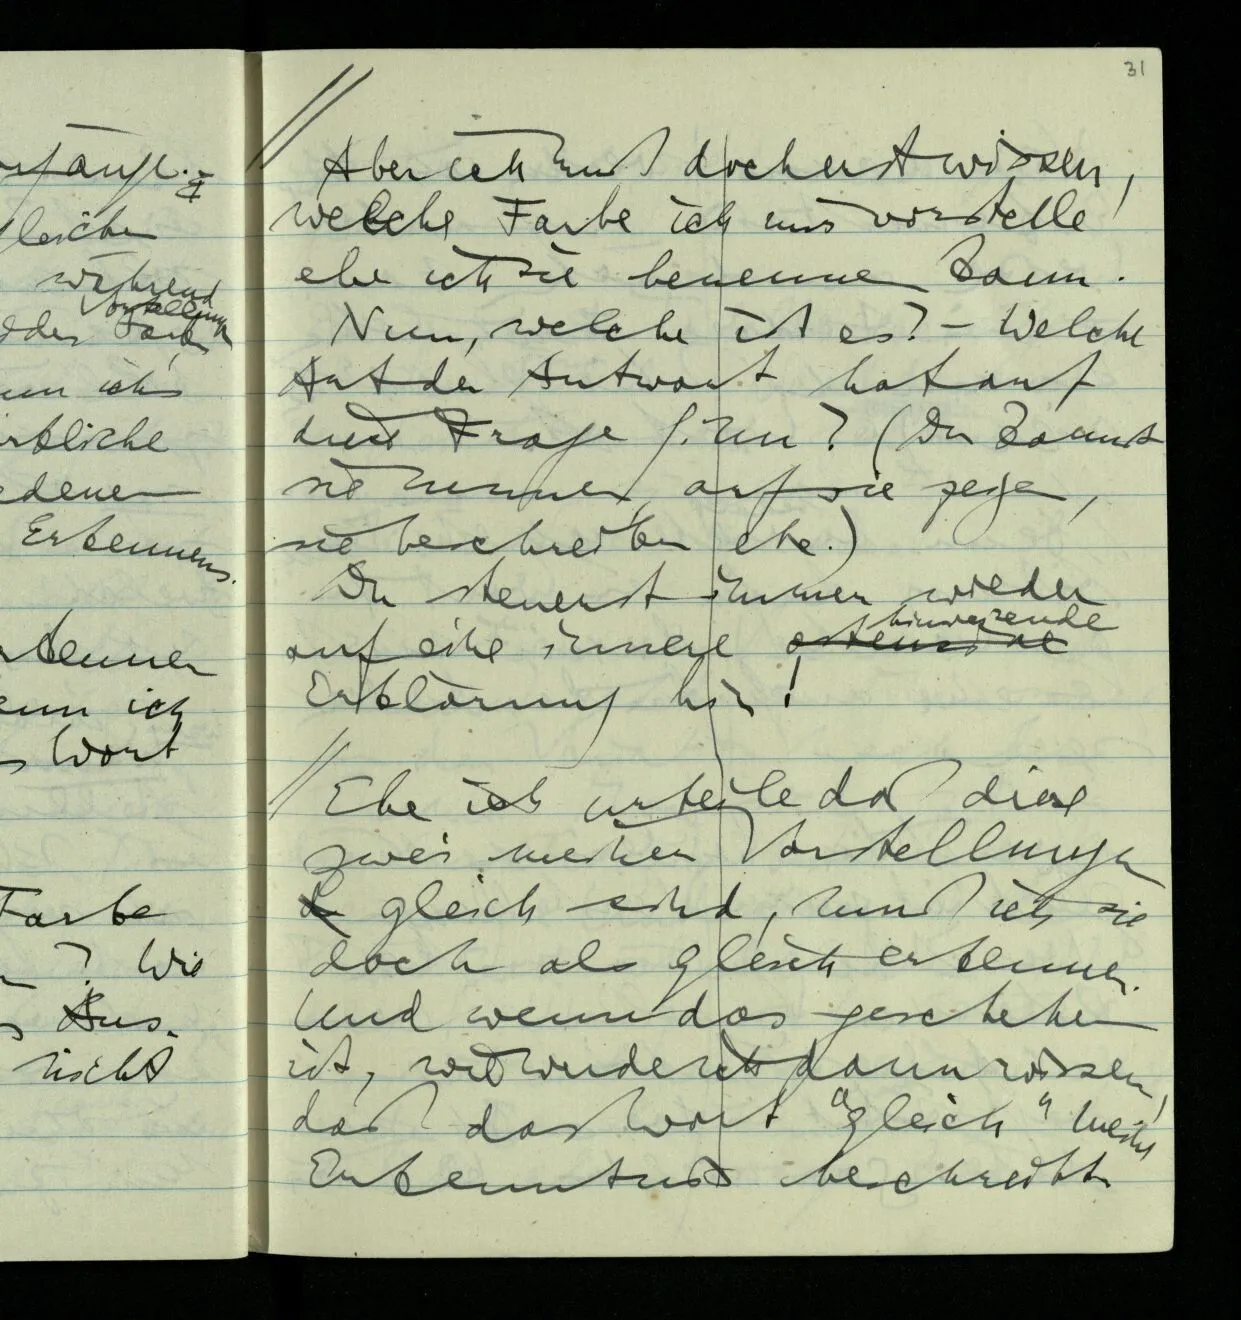 31
gleichen
während
Vorstellung
oder Farb
wenn ich's
wirkliche
Erkennens.
erkennen
wenn ich
Wort
Farbe
? Wie
Aus-
nicht
// Aber ich muß doch erst wissen,
welche Farbe ich mir vorstelle
ehe ich sie benennen kann.
Nun, welche ist es? – Welche
Art der Antwort hat auf
diese Frage Sinn? (Du kannst
sie nennen, auf sie zeigen,
sie beschreiben etc.)
Du steuerst immer wieder
hinweisende
auf eine innere ostensive
Erklärung hin!
// Ehe ich urteile daß diese
zwei meiner Vorstellungen
gleich sind, muß ich sie
doch als gleich erkennen.
Und wenn das geschehen
ist, wie werde ich dann wissen,
daß das Wort "gleich" meine
Erkenntnis beschreibt